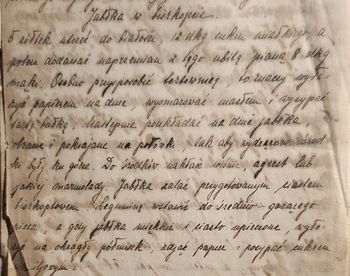 Jabłka w biszkopcie.
5 żółtek utrzeć do białości, 12 dkg cukru miałkiego, a
potem dodawać naprzemian z tego ubitą pianę 8 dkg
mąki. Osobno przysposobić tortownicę, to znaczy wyło-
żyć papierem na dnie, wysmarować masłem i wysypać
tartą bułką. Następnie poukładać na dnie jabłka,
obrane i pokrajane na połówki, tak aby wydrążone środ-
ki były ku górze. Do środków nakłaść wiśnie, agrest lub
jakiej marmolady. Jabłka zalać przygotowanym ciastem
biszkoptowem. Leguminę wstawić do średnio-gorącego
pieca, a gdy jabłka miękkie i ciasto upieczone, wyło-
żyć na okrągły półmisek, zdjąć papier i posypać cukrem